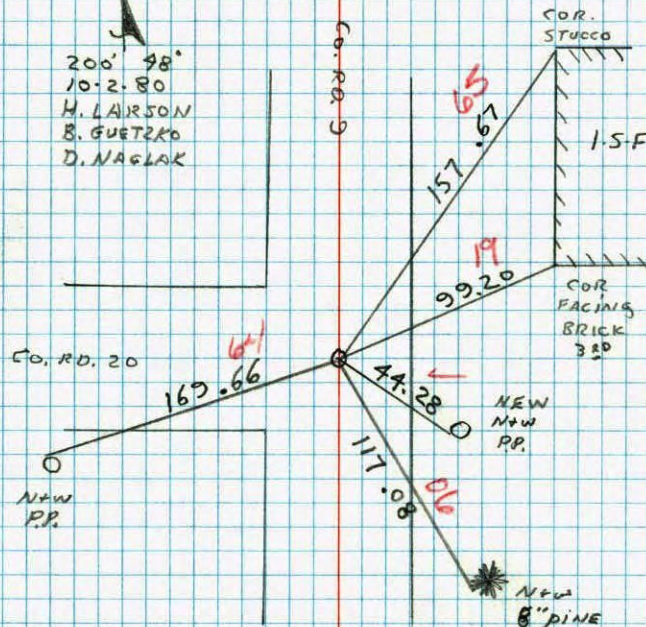 200' 48°
10-2-80
H. LARSON
B. GUETZKO
D. NAGLAK
CO. RD. 9
COR.
STUCCO
1-S-F
65
157.67
19
99.20
COR
FACING
BRICK
3RD
CO. RD. 20
64
169.66
44.28
NEW
N+W
P.P.
N+W
P.P.
117.08
06
N+W
8" PINE